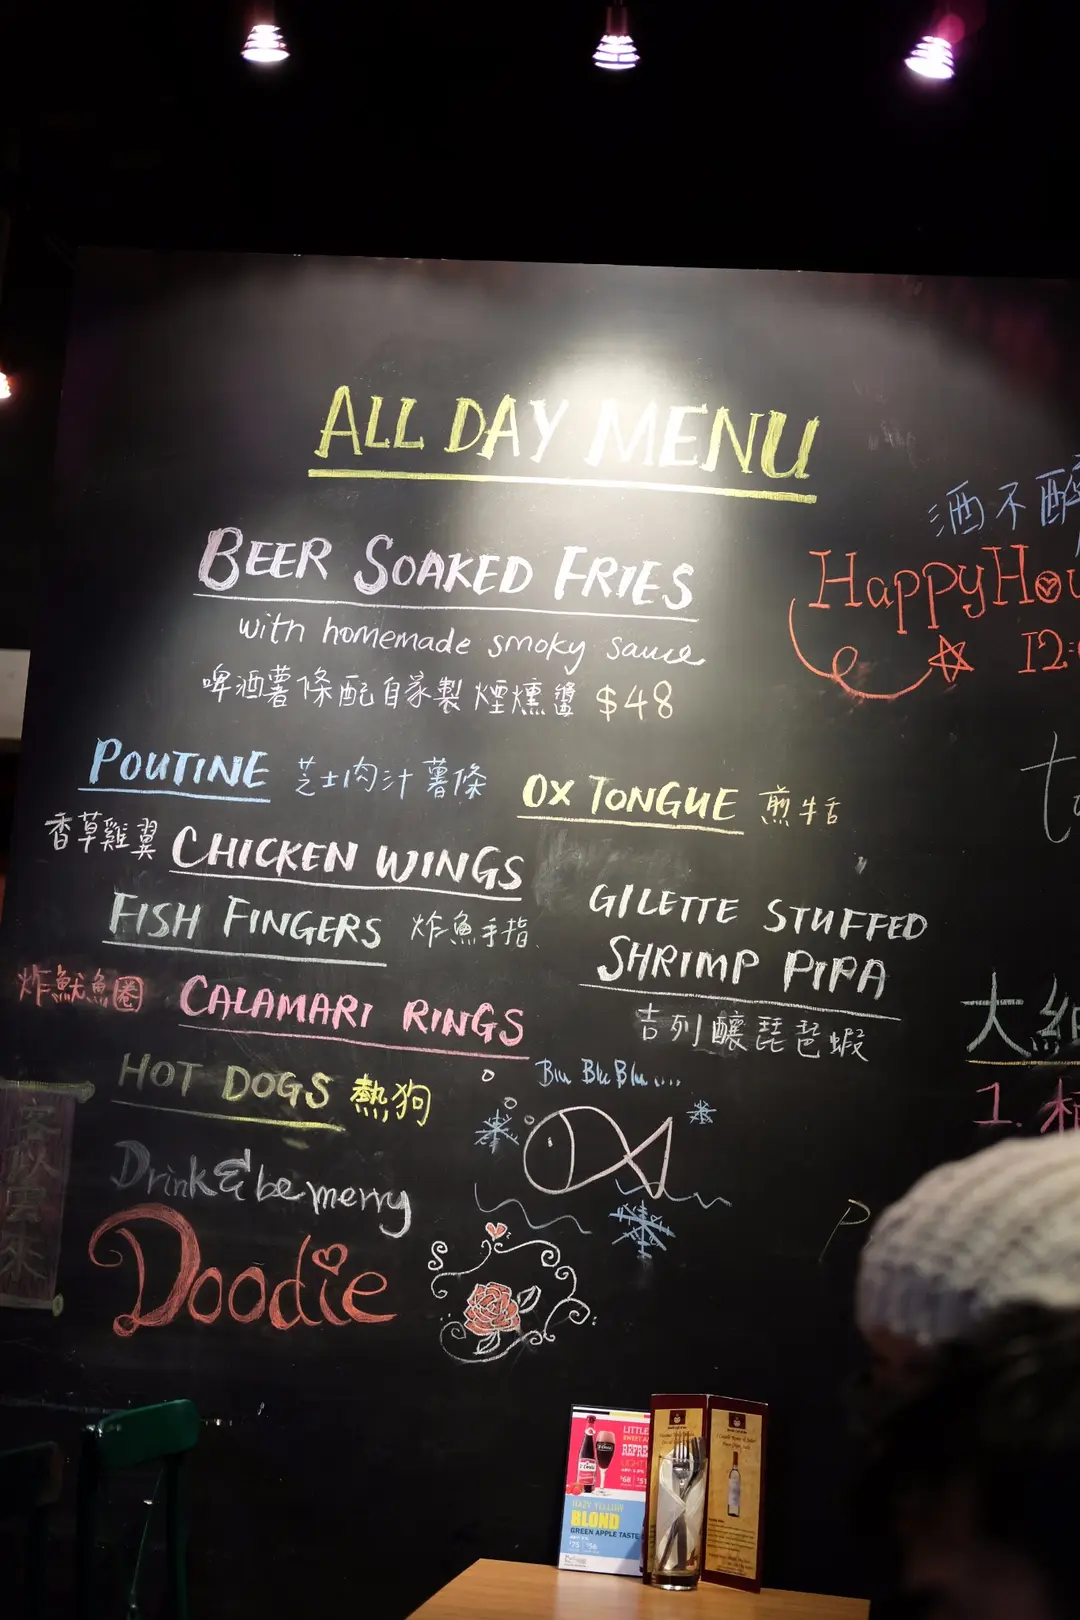 ALL DAY MENU
BEER SOAKED FRIES
with homemade smoky sauce
啤酒薯條配自家製煙燻醬 $48
POUTINE 芝士肉汁薯條
OX TONGUE 煎牛舌
香草雞翼 CHICKEN WINGS
FISH FINGERS 炸魚手指
GILETTE STUFFED
SHRIMP PIPA
吉列釀琵琶蝦
炸魷魚圈 CALAMARI RINGS
HOT DOGS 熱狗
Blu Blu Blu....
Drink & be merry
Doodie
酒不醉
Happy Hou
12:
大
1.
P
LITTLE
SWEET
REFRE
LIGHT
HAZY YELLOW
BLOND
GREEN APPLE TASTE